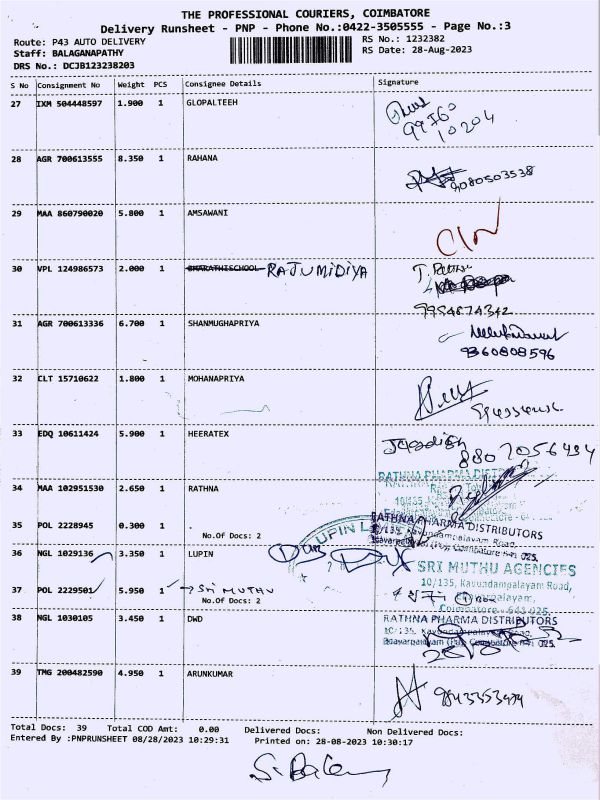 THE PROFESSIONAL COURIERS, COIMBATORE
Delivery Runsheet - PNP - Phone No.:0422-3505555 - Page No.:3
Route: P43 AUTO DELIVERY
RS No.: 1232382
Staff: BALAGANAPATHY
RS Date: 28-Aug-2023
DRS No.: DCJB123238203
S No Consignment No Weight PCS Consignee Details Signature
27 IXM 504448597 1.900 1 GLOPALTEEH
99760
10204
28 AGR 700613555 8.350 1 RAHANA
9080503538
29 MAA 860790020 5.800 1 AMSAWANI
30 VPL 124986573 2.000 1 BHARATHISCHOOL RAJUMIDIYA
9994874342
31 AGR 700613336 6.700 1 SHANMUGHAPRIYA
9360808596
32 CLT 15710622 1.800 1 MOHANAPRIYA
33 EDQ 10611424 5.900 1 HEERATEX
Jagadish
880 7056494
RATHNA PHARMA DISTRI
34 MAA 102951530 2.650 1 RATHNA
35 POL 2228945 0.300 1
No.Of Docs: 2
RATHNA PHARMA DISTRIBUTORS
Kavundampalayam Road,
36 NGL 1029136 3.350 1 LUPIN
LUPIN L
SRI MUTHU AGENCIES
10/135, Kavundampalayam Road,
37 POL 2229501 5.950 1 → SRI MUTHU
No.Of Docs: 2
Coimbatore - 641 025.
38 NGL 1030105 3.450 1 DWD
RATHNA PHARMA DISTRIBUTORS
39 TMG 200482590 4.950 1 ARUNKUMAR
Total Docs: 39 Total COD Amt: 0.00 Delivered Docs: Non Delivered Docs:
Entered By :PNPRUNSHEET 08/28/2023 10:29:31 Printed on: 28-08-2023 10:30:17